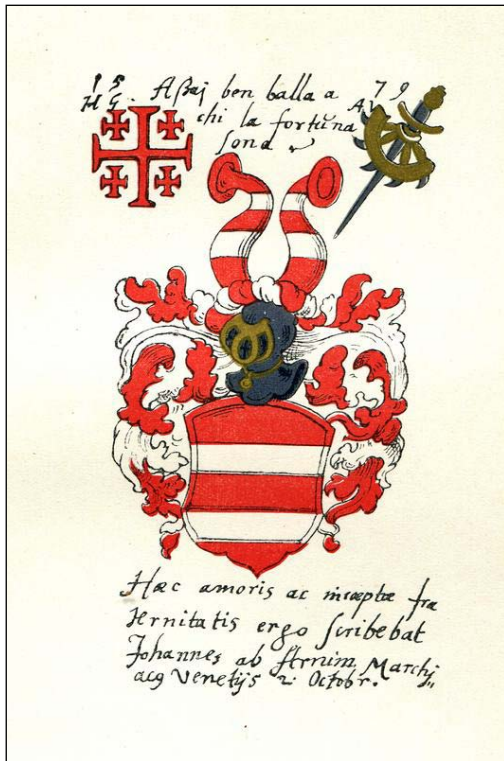 15 Aßaj ben balla a 79
H G. chi la fortuna AV
sona
Hæc amoris ac inceptæ fra
ternitatis ergo scribebat
Johannes ab Arnim Marchj
acq Venetijs 2. Octobr.